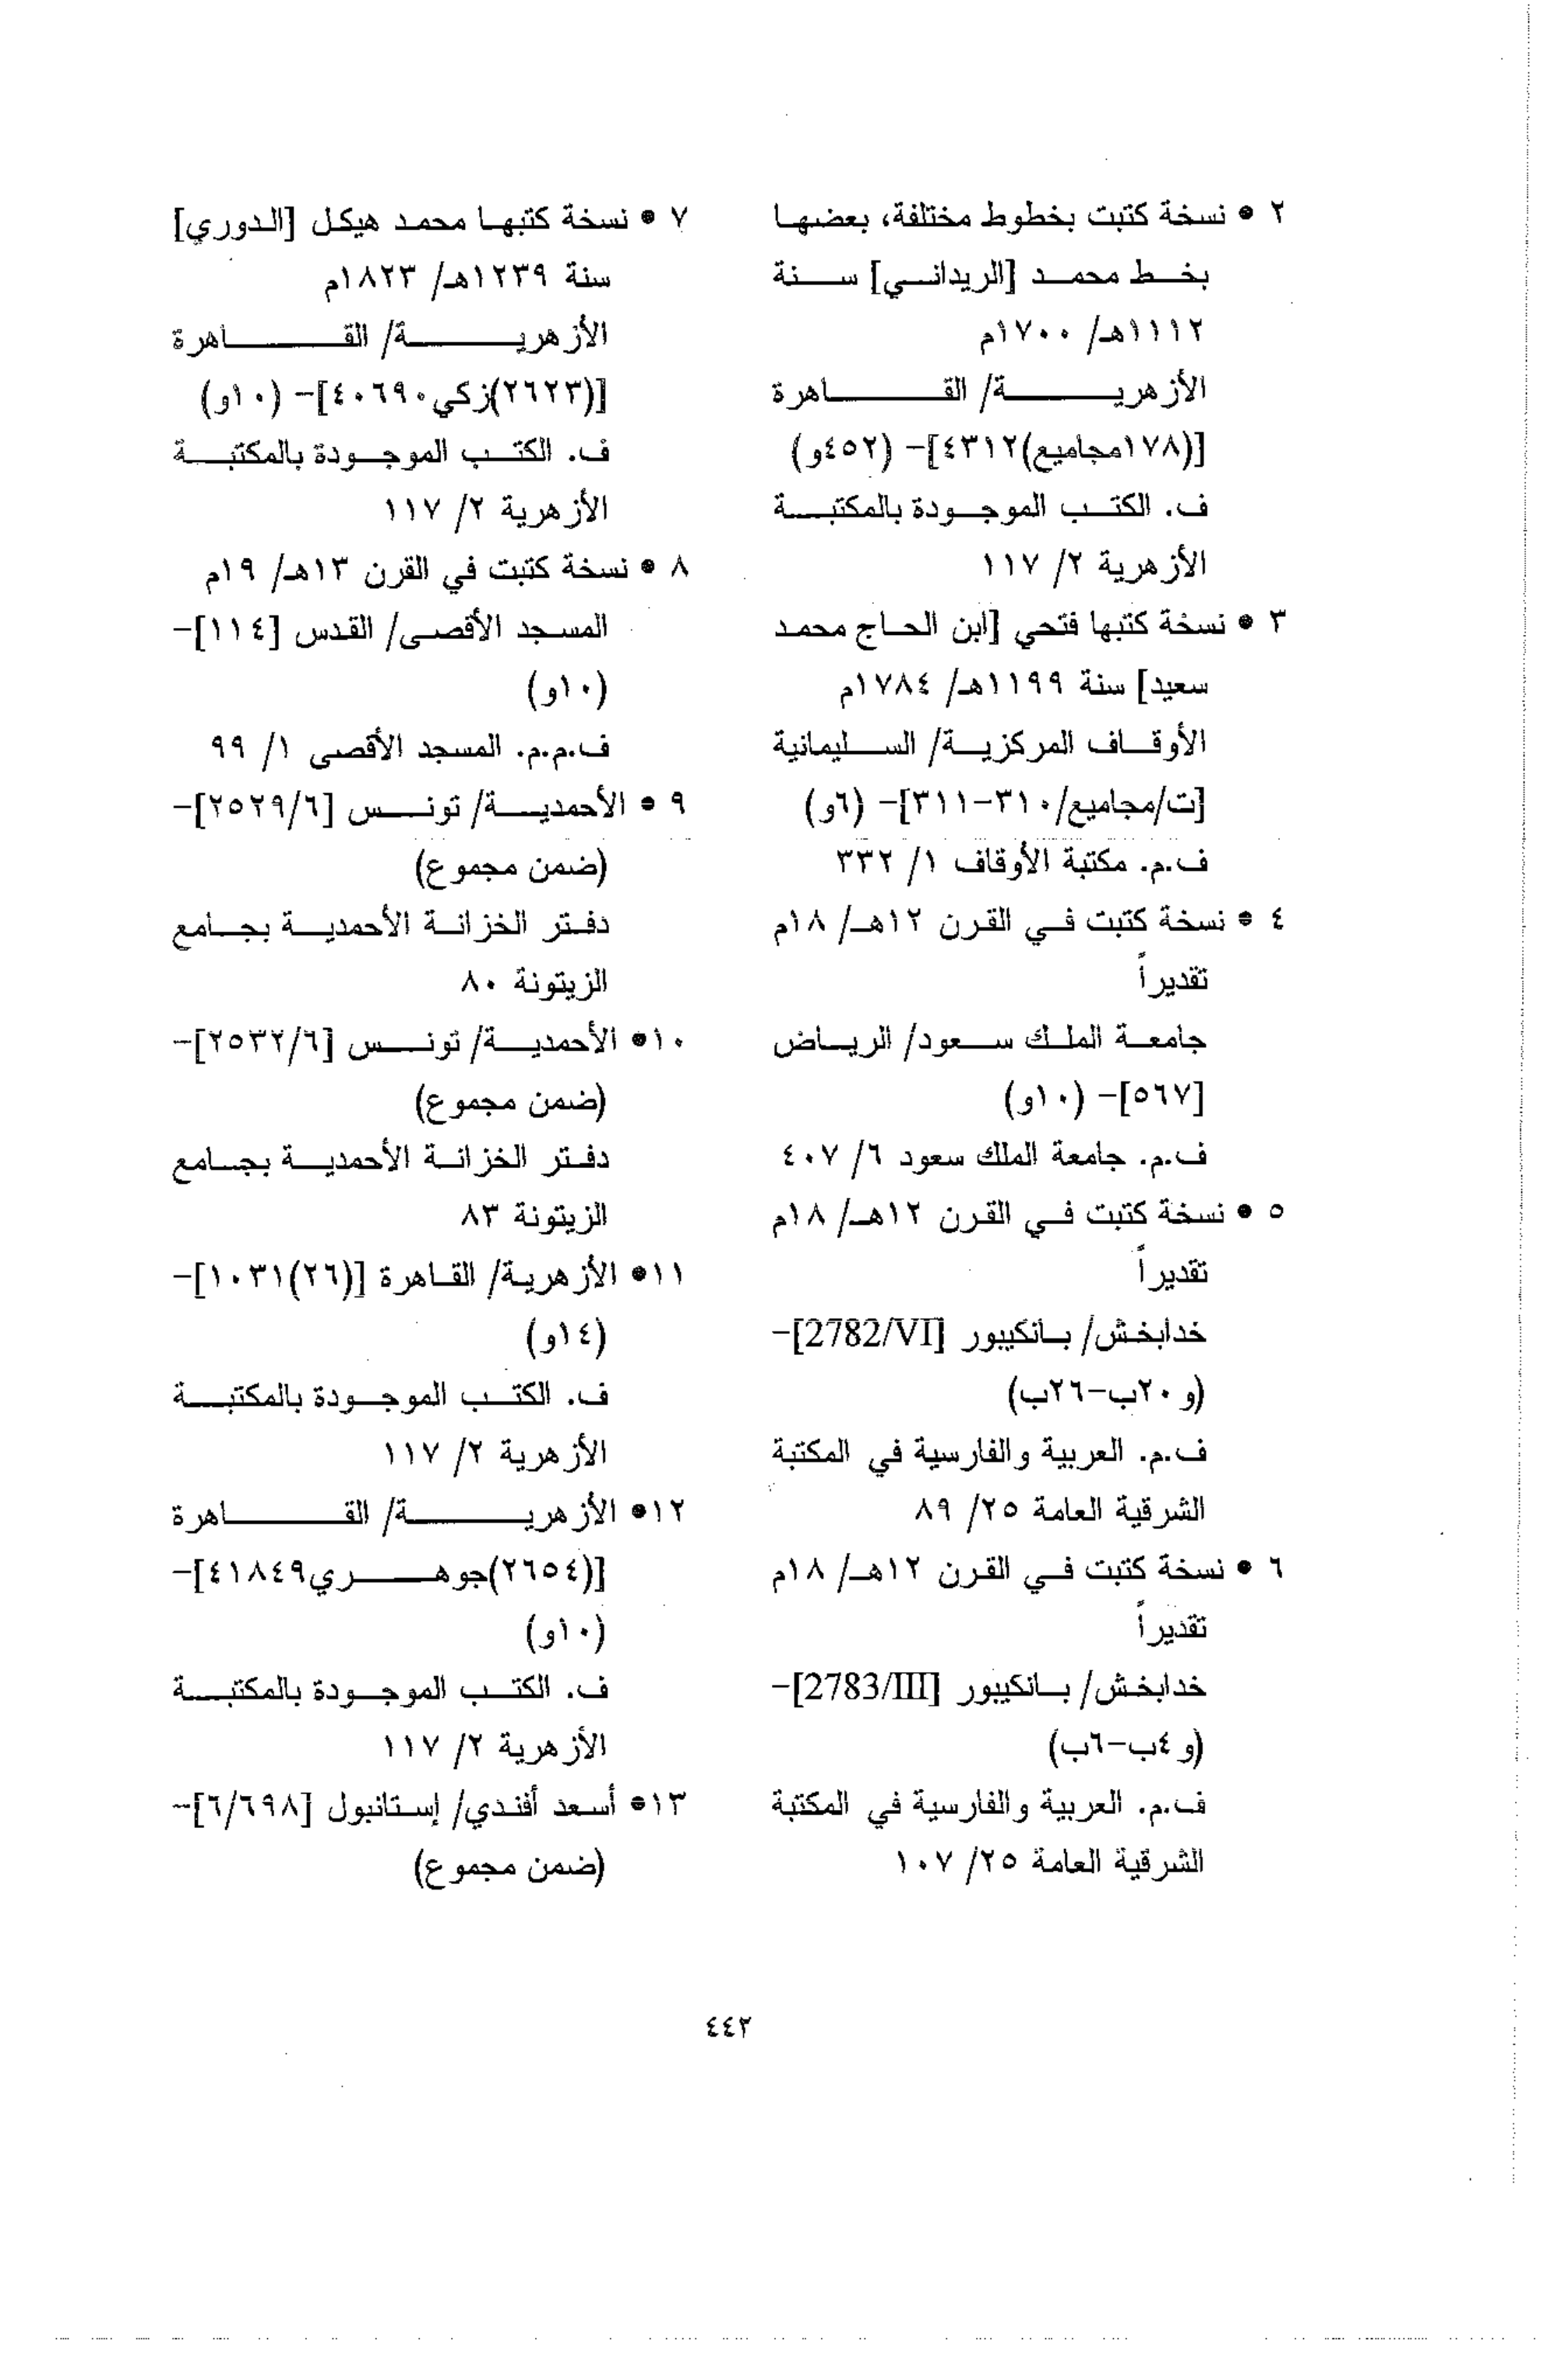 ٢ • نسخة كتبت بخطوط مختلفة، بعضها
بخط محمد [الريداني] سنة
١١١٢هـ/ ١٧٠٠م
الأزهرية/ القاهرة
[(١٧٨مجاميع)٤٣١٢]- (٤٥٢و)
ف. الكتب الموجودة بالمكتبة
الأزهرية ٢/ ١١٧
٣ • نسخة كتبها فتحي [ابن الحاج محمد
سعيد] سنة ١١٩٩هـ/ ١٧٨٤م
الأوقاف المركزية/ السليمانية
[ت/مجاميع/٣١٠-٣١١]- (٦و)
ف.م. مكتبة الأوقاف ١/ ٣٣٢
٤ • نسخة كتبت في القرن ١٢هـ/ ١٨م
تقديراً
جامعة الملك سعود/ الرياض
[٥٦٧]- (١٠و)
ف.م. جامعة الملك سعود ٦/ ٤٠٧
٥ • نسخة كتبت في القرن ١٢هـ/ ١٨م
تقديراً
خدابخش/ بانكيبور [2782/VI]-
(و ٢٠ب-٢٦ب)
ف.م. العربية والفارسية في المكتبة
الشرقية العامة ٢٥/ ٨٩
٦ • نسخة كتبت في القرن ١٢هـ/ ١٨م
تقديراً
خدابخش/ بانكيبور [2783/III]-
(و ٤ب-٦ب)
ف.م. العربية والفارسية في المكتبة
الشرقية العامة ٢٥/ ١٠٧
٧ • نسخة كتبها محمد هيكل [الدوري]
سنة ١٢٣٩هـ/ ١٨٢٣م
الأزهرية/ القاهرة
[(٢٦٢٣)زكي٤٠٦٩٠]- (١٠و)
ف. الكتب الموجودة بالمكتبة
الأزهرية ٢/ ١١٧
٨ • نسخة كتبت في القرن ١٣هـ/ ١٩م
المسجد الأقصى/ القدس [١١٤]-
(١٠و)
ف.م.م. المسجد الأقصى ١/ ٩٩
٩ • الأحمدية/ تونس [٢٥٢٩/٦]-
(ضمن مجموع)
دفتر الخزانة الأحمدية بجامع
الزيتونة ٨٠
١٠• الأحمدية/ تونس [٢٥٣٢/٦]-
(ضمن مجموع)
دفتر الخزانة الأحمدية بجامع
الزيتونة ٨٣
١١• الأزهرية/ القاهرة [(٢٦)١٠٣١]-
(١٤و)
ف. الكتب الموجودة بالمكتبة
الأزهرية ٢/ ١١٧
١٢• الأزهرية/ القاهرة
[(٢٦٥٤)جوهري٤١٨٤٩]-
(١٠و)
ف. الكتب الموجودة بالمكتبة
الأزهرية ٢/ ١١٧
١٣• أسعد أفندي/ إستانبول [٦/٦٩٨]-
(ضمن مجموع)
٤٤٢